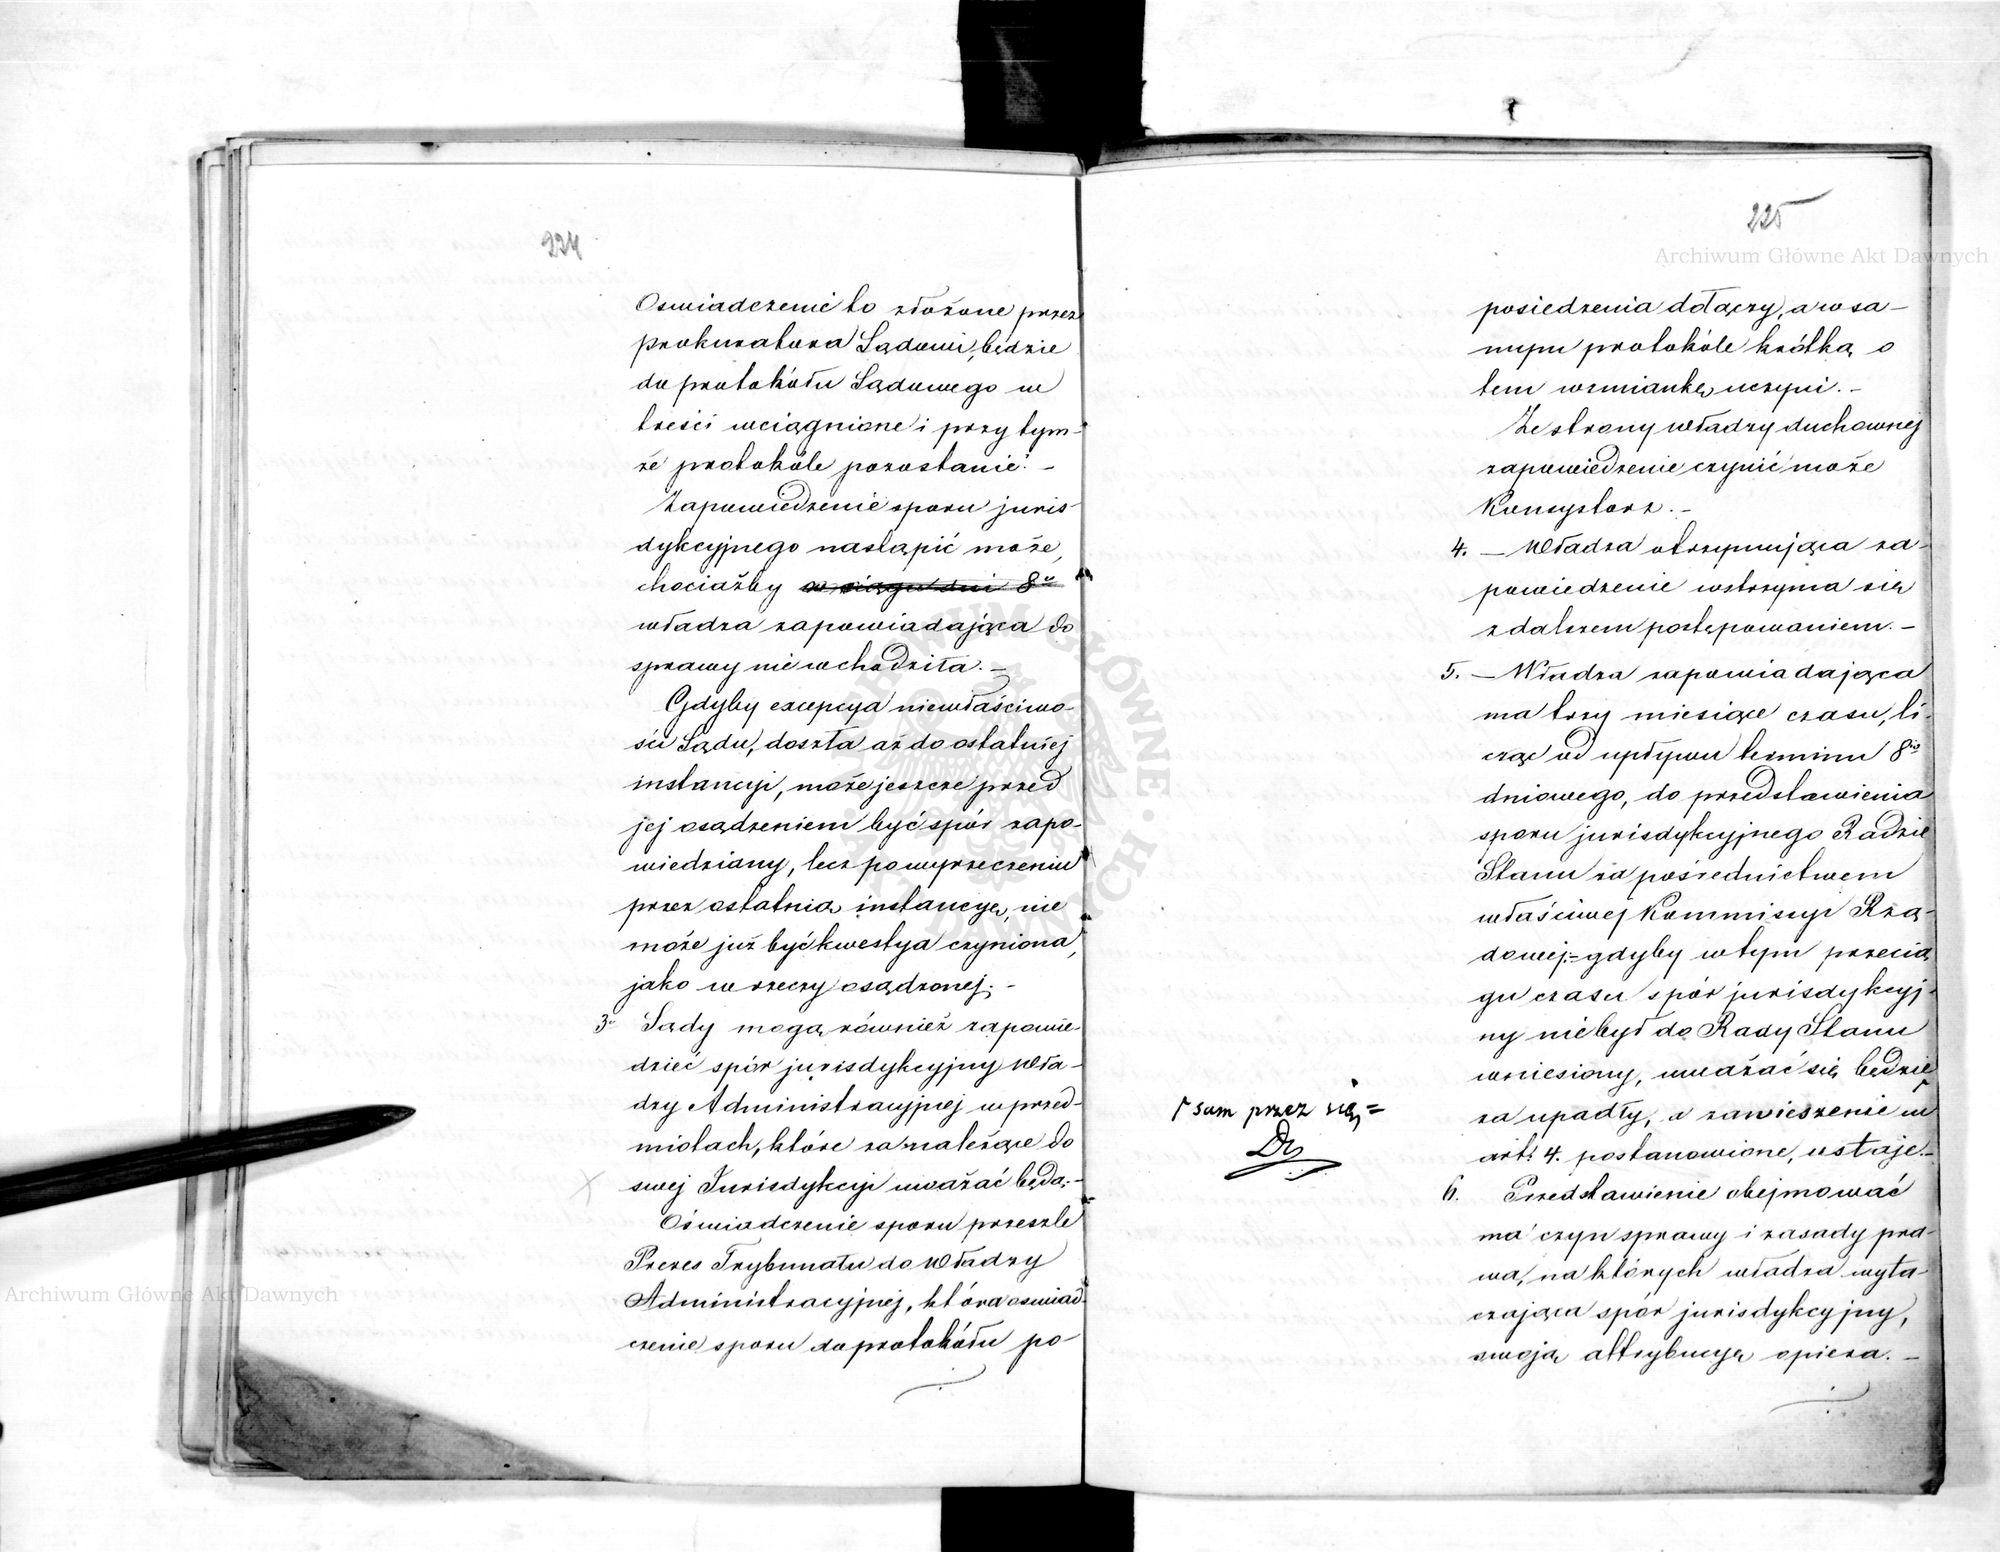 224
Oświadczenie to złożone przez
prokuratora Sądowi, będzie
do protokółu Sądowego w
treści wciągnione i przy tym-
że protokóle pozostanie. –
Zapowiedzenie sporu juris-
dykcyjnego nastąpić może,
chociażby w ciągu dni 8u
władza zapowiadająca do
sprawy nie wchodziła. –
Gdyby excepcya niewłaściwo-
ści Sądu, doszła aż do ostatniej
instancyi, może jeszcze przed
jej osądzeniem być spór zapo-
wiedziany, lecz po wyrzeczeniu
przez ostatnią instancyę, nie
może już być kwestya czyniona,
jako w rzeczy osądzonej. –
3o Sądy mogą również zapowie
dzieć spór jurisdykcyjny Wła-
dzy Administracyjnej w przed-
miotach, które za należące do
swej Jurisdykcyi uważać będą. –
Oświadczenie sporu prześle
Prezes Trybunału do Władzy
Administracyjnej, która oświad-
czenie sporu do protokółu po-
225
posiedzenia dołączy, a w sa-
mym protokóle krótką o
tem wzmiankę uczyni. –
Ze strony władzy duchownej
zapowiedzenie czynić może
Konsystorz. –
4. – Władza otrzymująca za-
powiedzenie wstrzyma się
z dalszem postępowaniem. –
5. – Władza zapowiadająca
ma trzy miesiące czasu, li-
cząc od upływu terminu 8io
dniowego, do przedstawienia
sporu jurisdykcyjnego Radzie
Stanu za pośrednictwem
właściwej Kommissyi Rzą-
dowej: – gdyby w tym przecią
gu czasu spór jurisdykcyj-
ny nie był do Rady Stanu
wniesiony, uważać się będzie
za upadły, a zawieszenie w
art: 4. postanowione, ustaje. –
6. Przedstawienie obejmować
ma czyn sprawy i zasady pra-
wa, na których władza wyta-
czająca spór jurisdykcyjny,
swoją attrybucyę opiera. –
sam przez się =
Archiwum Główne Akt Dawnych
Archiwum Główne Akt Dawnych